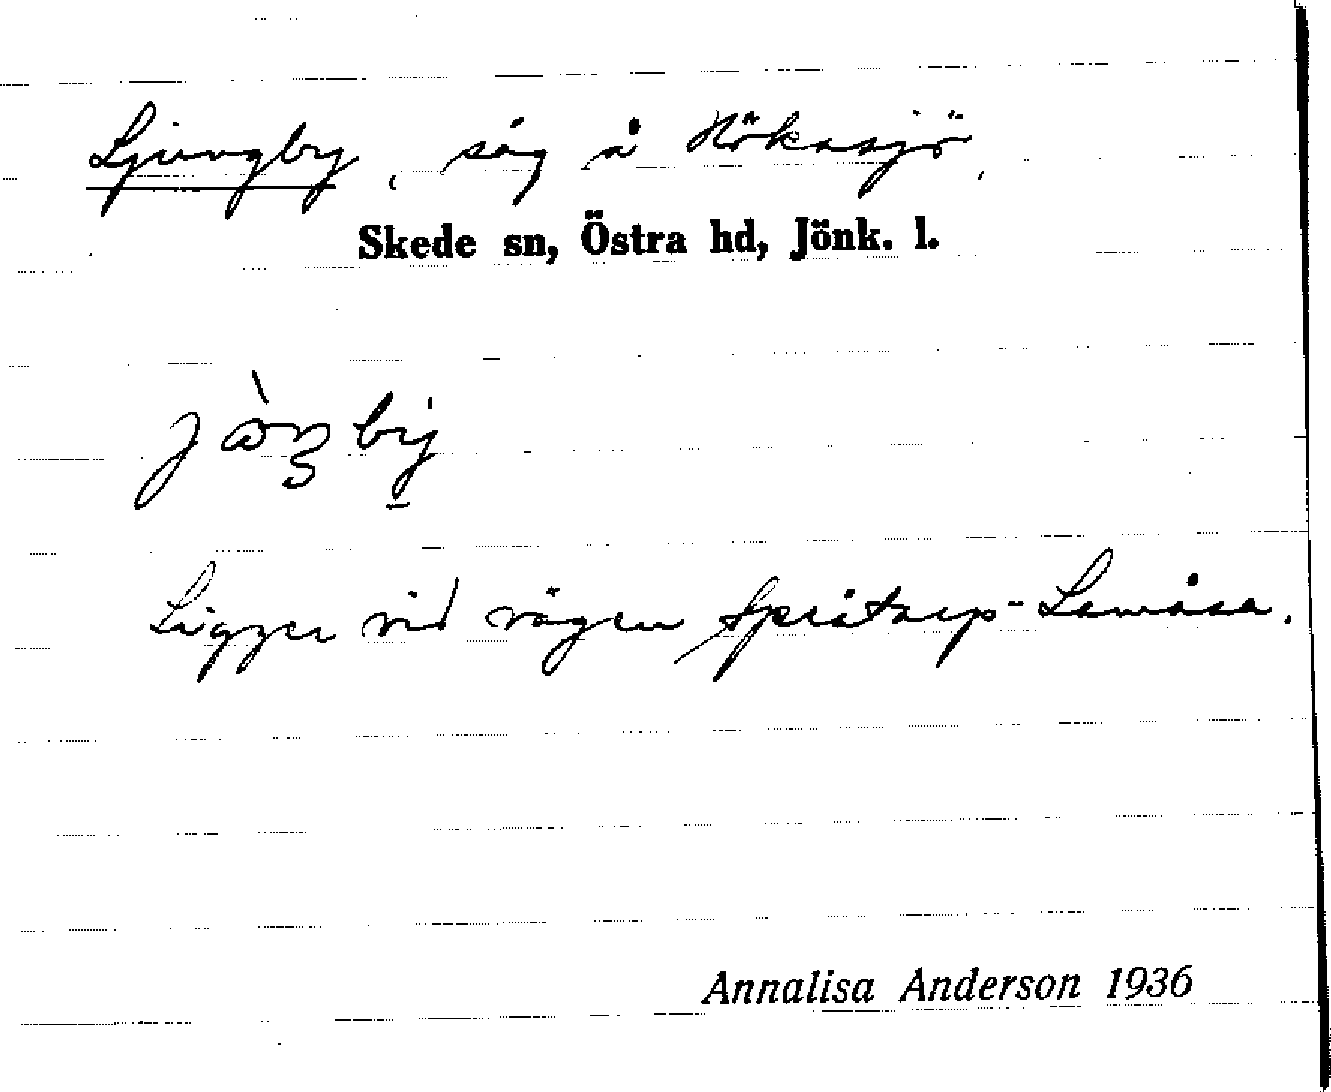 Ljungby, såg å Hökasjö.
Skede sn, Östra hd, Jönk. l.
Ligger vid vägen Språtarp-Lemåsa.
Annalisa Anderson 1936